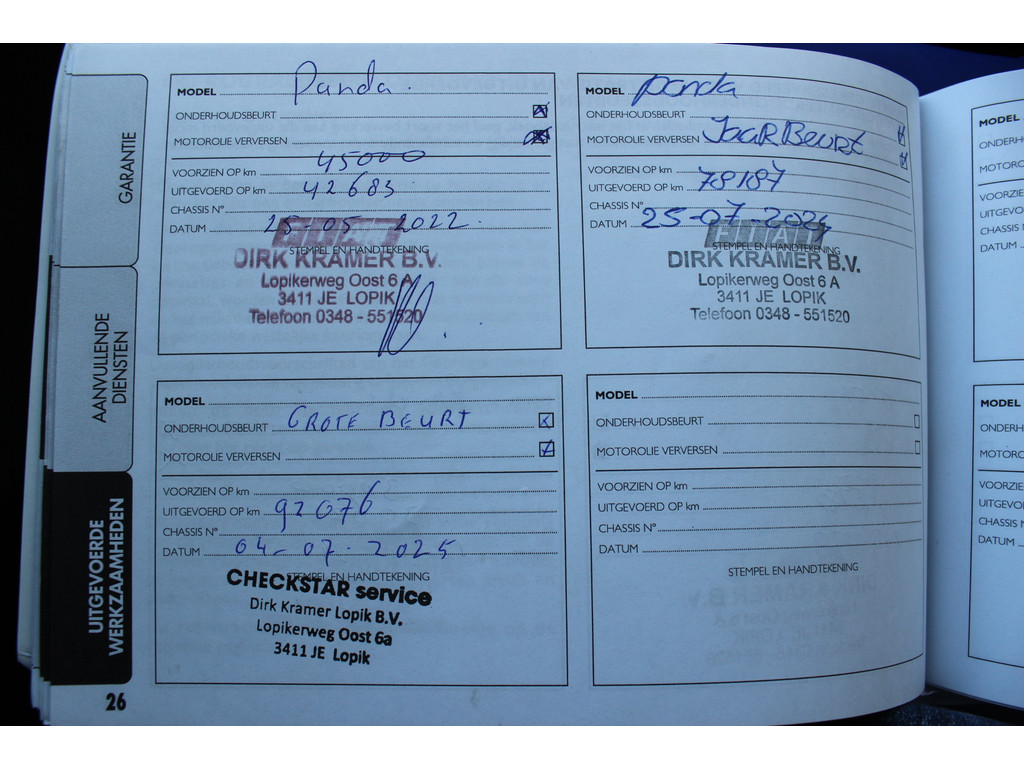 GARANTIE
AANVULLENDE
DIENSTEN
UITGEVOERDE
WERKZAAMHEDEN
26
MODEL Panda.
ONDERHOUDSBEURT
MOTOROLIE VERVERSEN
VOORZIEN OP km 45000
UITGEVOERD OP km 42683
CHASSIS N°
DATUM 25-05 2022.
FIAT
STEMPEL EN HANDTEKENING
DIRK KRAMER B.V.
Lopikerweg Oost 6 A
3411 JE LOPIK
Telefoon 0348 - 551520
MODEL panda
ONDERHOUDSBEURT
MOTOROLIE VERVERSEN JaaRBeurt
VOORZIEN OP km
UITGEVOERD OP km 78187
CHASSIS N°
DATUM 25-07-2024
FIAT
STEMPEL EN HANDTEKENING
DIRK KRAMER B.V.
Lopikerweg Oost 6 A
3411 JE LOPIK
Telefoon 0348 - 551520
MODEL
ONDERHOUDSBEURT GROTE BEURT
MOTOROLIE VERVERSEN
VOORZIEN OP km
UITGEVOERD OP km 92076
CHASSIS N°
DATUM 04-07-2025
STEMPEL EN HANDTEKENING
CHECKSTAR service
Dirk Kramer Lopik B.V.
Lopikerweg Oost 6a
3411 JE Lopik
MODEL
ONDERHOUDSBEURT
MOTOROLIE VERVERSEN
VOORZIEN OP km
UITGEVOERD OP km
CHASSIS N°
DATUM
STEMPEL EN HANDTEKENING
MODEL
ONDERH
MOTORO
VOORZIE
UITGEVO
CHASSIS
DATUM
MODEL
ONDERH
MOTORO
VOORZIE
UITGEVO
CHASSIS N
DATUM